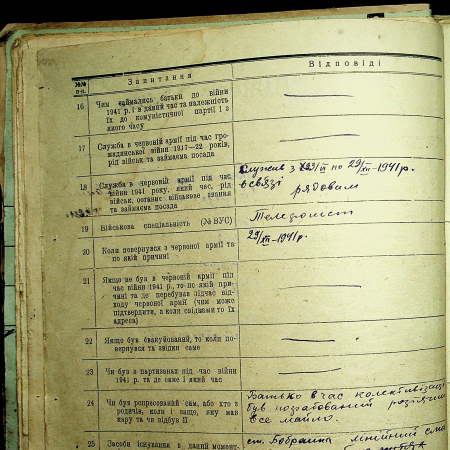 №№ п-п.
Запитання
Відповіді
16
Чим займались батьки до війни
1941 р. і в даний час та належність
їх до комуністичної партії і з
якого часу
17
Служба в червоній армії під час гро-
мадянської війни 1917—22 років,
рід військ та займаєма посада
18
Служба в червоній армії під час
війни 1941 року, який час, рід
військ, останнє військове звання
та займаєма посада
Служив з по 29/XII-1941 р.
в связі рядовим
19
Військова спеціальність (№ ВУС)
Телефоніст
20
Коли повернувся з червоної армії та
по якій причині
29/XII-1941 р.
21
Якщо не був в червоній армії під
час війни 1941 р., то по якій при-
чині та де перебував підчас від-
ходу червоної армії (чим може
підтвердити, а коли свідками то їх
адреса)
22
Якщо був евакуйований, то коли по-
вернувся та звідки саме
23
Чи був в партизанах під час війни
1941 р. та де саме і який час
24
Чи був репресований сам, або хто з
родичів, коли і защо, яку мав
кару та чи відбув її
Батько в час колективізаці
був
все майно.
25
Засоби існування в даний момент
ст. Бобринка